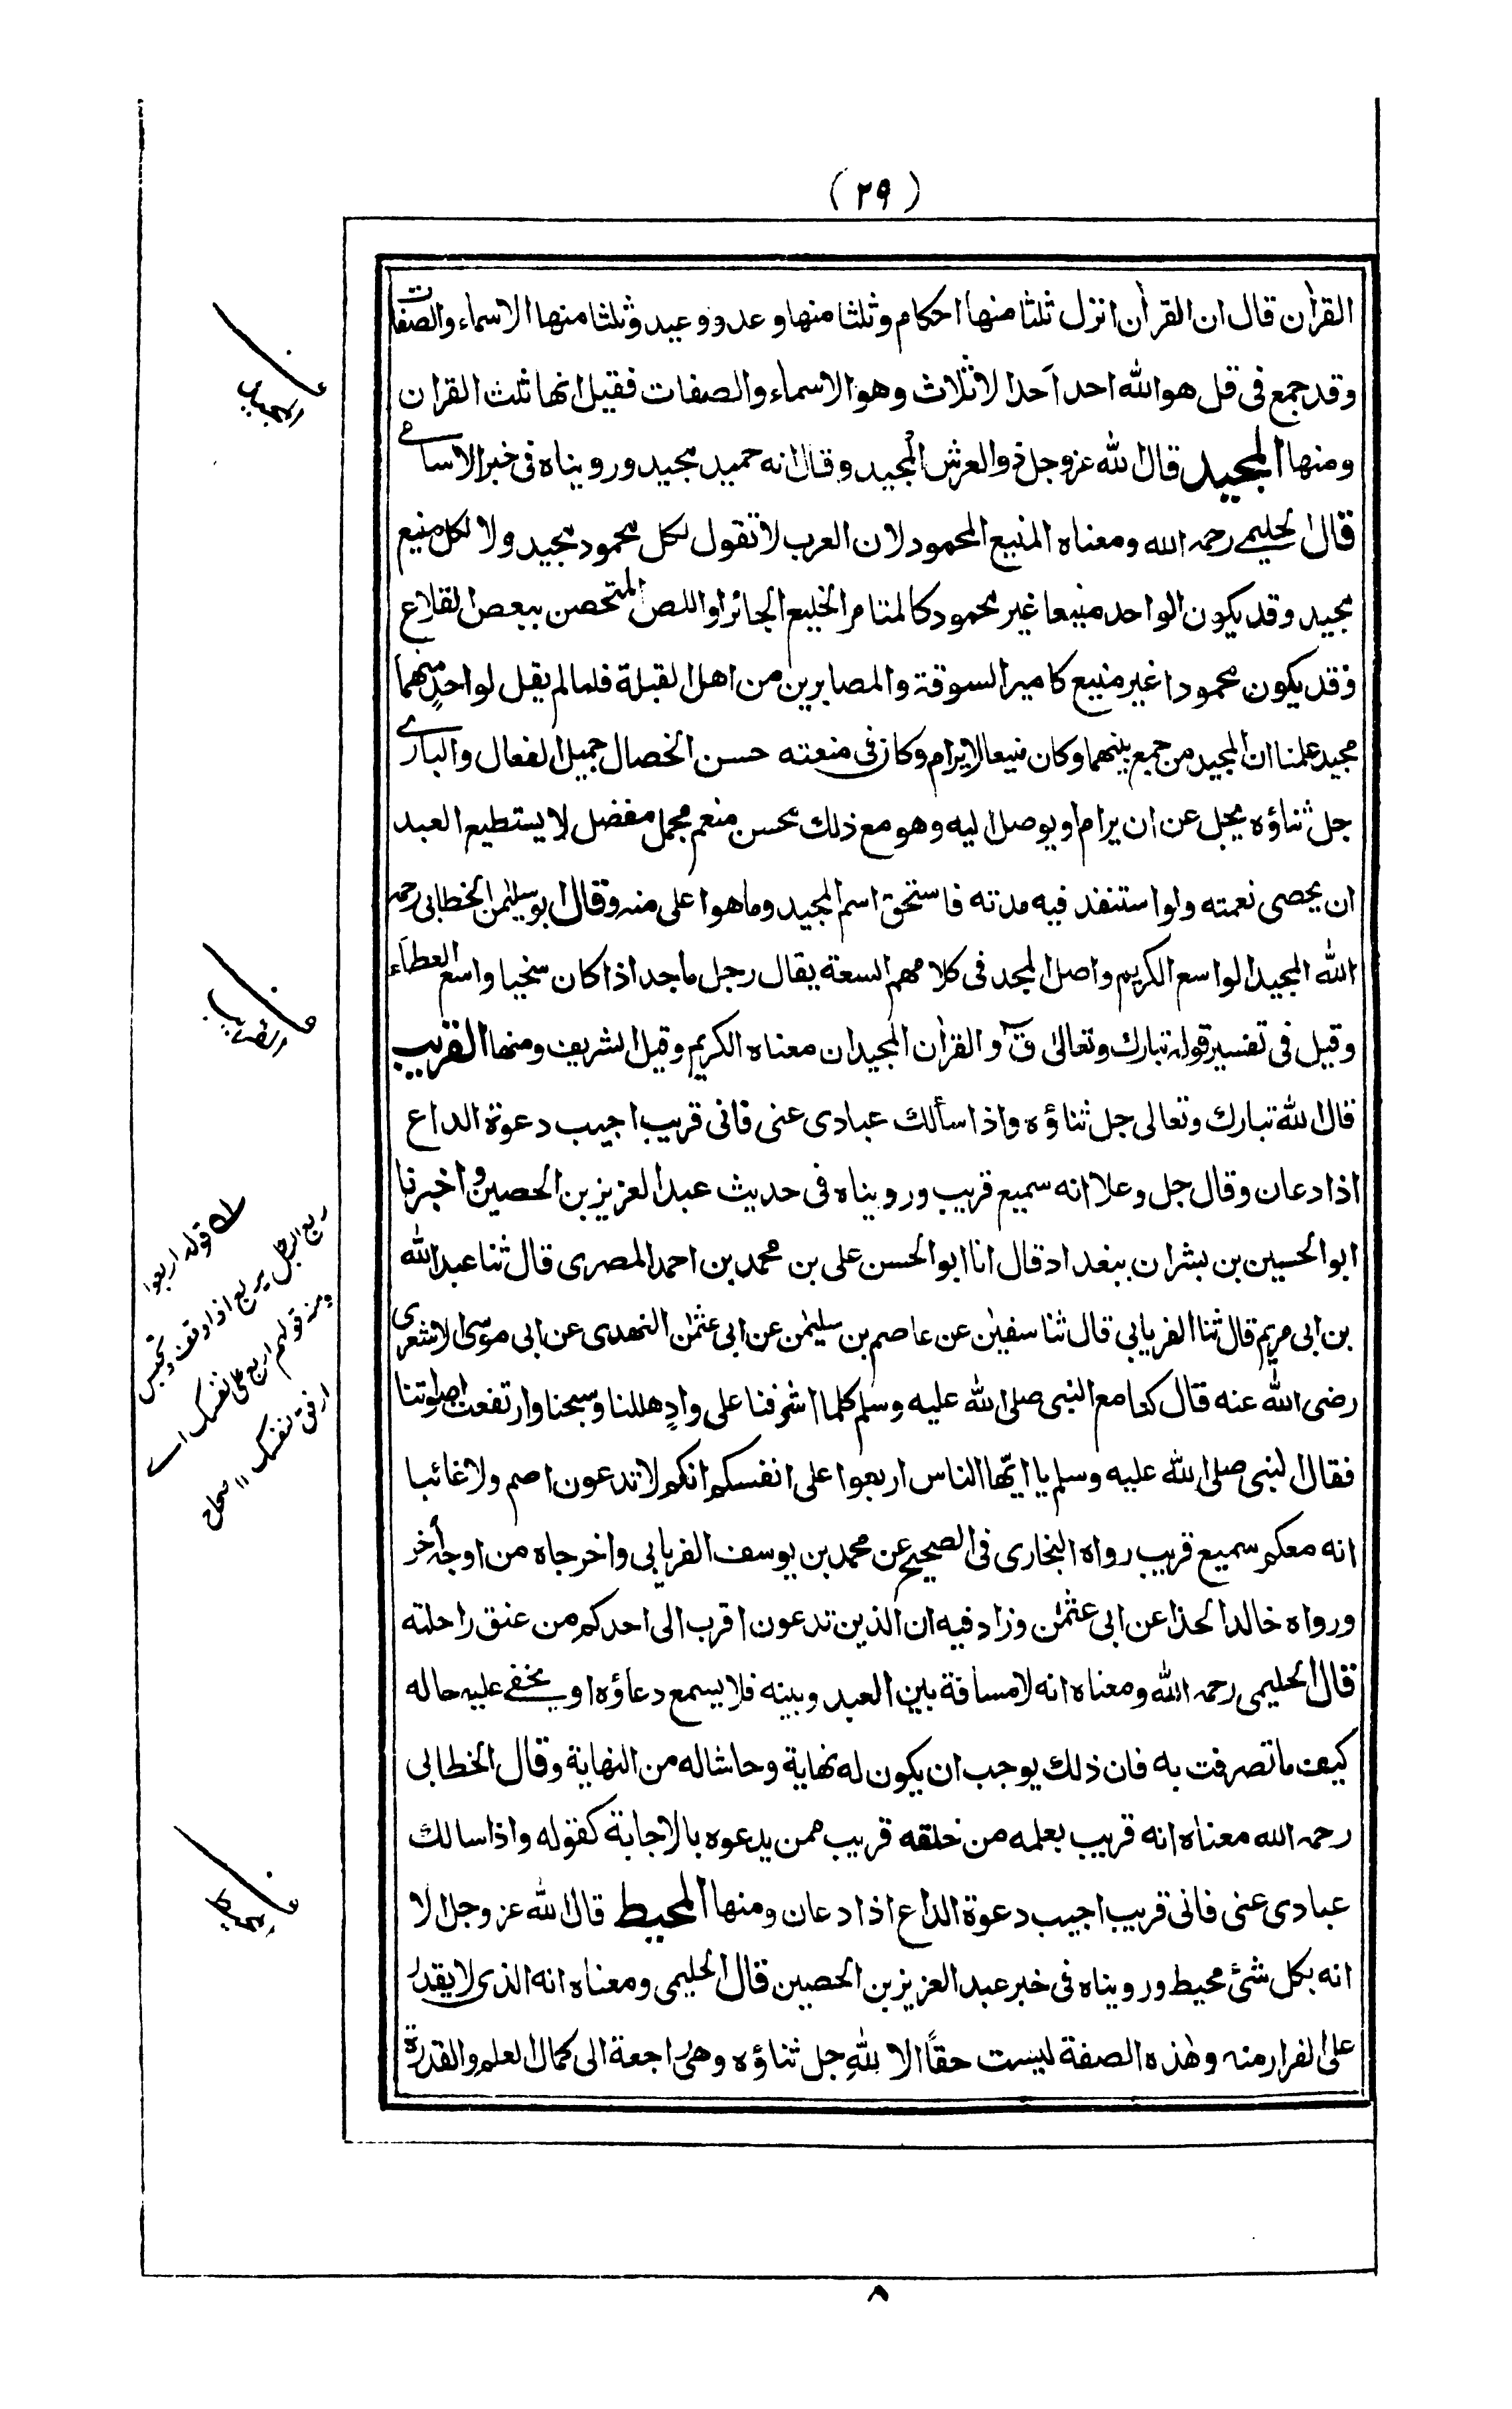 (٢٩)
القرأن قال ان القرأن انزل ثلثا منها احكام وثلثا منها وعد ووعيد وثلثا منها الاسماء والصفات
وقد جمع فى قل هو الله احد أحد الاثلاث وهو الاسماء والصفات فقيل انها ثلث القران
ومنها المجيد قال الله عزوجل ذو العرش المجيد وقال انه حميد مجيد ورويناه فى خبر الاسامى
قال الحليمى رحمه الله ومعناه المنيع المحمود لان العرب لا تقول لكل محمود مجيد ولا لكل منيع
مجيد وقد يكون الواحد منيعا غير محمود كالمتامر الخليع الجائر او اللص المتحصن ببعض القلاع
وقد يكون محمودا غير منيع كامير السوقة والمصابرين من اهل القبلة فلما لم يقل لواحدٍ منهما
مجيد علمنا ان المجيد من جمع بينهما وكان منيعا لا يرام وكان فى منعته حسن الخصال جميل الفعال والبارى
جل ثناؤه يجل عن ان يرام او يوصل اليه وهو مع ذلك محسن منعم مجمل مفضل لا يستطيع العبد
ان يحصى نعمته ولو استنفد فيه مدته فاستحق اسم المجيد وما هو اعلى منه وقال ابو سليمٰن الخطابى رحمه
الله المجيد الواسع الكريم واصل المجد فى كلامهم السعة يقال رجل ماجد اذا كان سخيا واسع العطاء
وقيل فى تفسير قوله تبارك وتعالىٰ قٓ والقرأن المجيد ان معناه الكريم وقيل الشريف ومنها القريب
قال الله تبارك وتعالى جل ثناؤه واذا سألك عبادى عنى فانى قريب اجيب دعوة الداع
اذا دعان وقال جل وعلا انه سميع قريب ورويناه فى حديث عبد العزيز بن الحصين واخبرنا
ابو الحسين بن بشران ببغداد قال انا ابو الحسن على بن محمد بن احمد المصرى قال ثنا عبد الله
بن ابى مريم قال ثنا الفريابى قال ثنا سفيٰن عن عاصم بن سليمٰن عن ابى عثمٰن النهدى عن ابى موسى الاشعرى
رضى الله عنه قال كنا مع النبى صلى الله عليه وسلم كلما اشرفنا على وادٍ هللنا وسبحنا وارتفعت اصواتنا
فقال النبى صلى الله عليه وسلم يا ايّها الناس اربعوا على انفسكم انكم لا تدعون اصم ولا غائبا
انه معكم سميع قريب رواه البخارى فى الصحيح عن محمد بن يوسف الفريابى واخرجاه من اوجه أخر
ورواه خالد الحذا عن ابى عثمٰن وزاد فيه ان الذين تدعون اقرب الى احدكم من عنق راحلته
قال الحليمى رحمه الله ومعناه انه لا مسافة بين العبد وبينه فلا يسمع دعاؤه او يخفى عليه حاله
كيف ما تصرفت به فان ذلك يوجب ان يكون له نهاية وحاشا له من النهاية وقال الخطابى
رحمه الله معناه انه قريب بعلمه من خلقه قريب ممن يدعوه بالاجابة كقوله واذا سالك
عبادى عنى فانى قريب اجيب دعوة الداع اذا دعان ومنها المحيط قال الله عزوجل الا
انه بكل شئ محيط ورويناه فى خبر عبد العزيز بن الحصين قال الحليمى ومعناه انه الذى لا يقدر
على الفرار منه وهٰذه الصفة ليست حقًا الا للهِ جل ثناؤه وهى راجعة الى كمال العلم والقدرة
المجيد
القريب
قوله اربعوا
ربع الرجل يربع اذا وقف وتحبس
ومنه قولهم اربع على نفسك اے
ارفق بنفسك ١١ صحاح
المحيط
٨